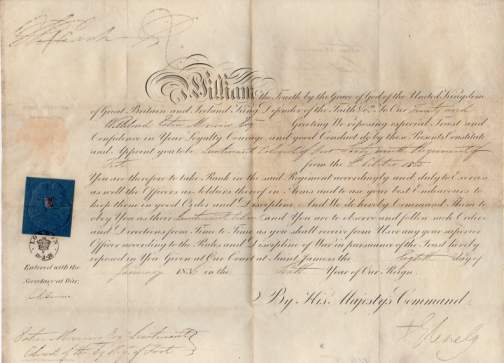 William the Fourth by the Grace of God of the United Kingdom
of Great Britain and Ireland King Defender of the Faith &c. To Our Trusty and
Wellbeloved Greeting We reposing especial Trust and
Confidence in Your Loyalty Courage and good Conduct do by these Presents Constitute
and Appoint you to be Lieutenant Colonel of Our Regiment of
Foot from the
You are therefore to take Rank in the said Regiment accordingly and duly to Exercise
as well the Officers as Soldiers thereof in Arms and to use your best Endeavours to
keep them in good Order and Discipline And We do hereby Command Them to
Obey You as their Lieutenant Colonel and You are to observe and follow such Orders
and Directions from Time to Time as you shall receive from Us or any your superior
Officer according to the Rules and Discipline of War in pursuance of the Trust hereby
reposed in You Given at Our Court at Saint James's the day of
January 1836 in the Sixth Year of Our Reign
Entered with the
Secretary at War
By His Majesty's Command
Glenelg
Lieutenant
Colonel of the Regt of Foot